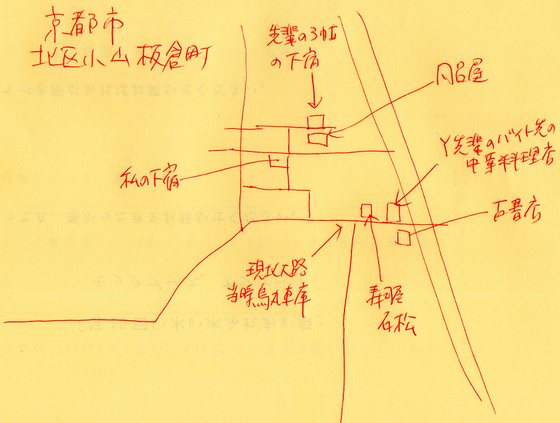 京都市
北区小山板倉町
先輩の3帖
の下宿
風呂屋
Y先輩のバイト先の
中華料理店
私の下宿
古書店
現北大路
当時烏丸車庫
寿司屋
石松